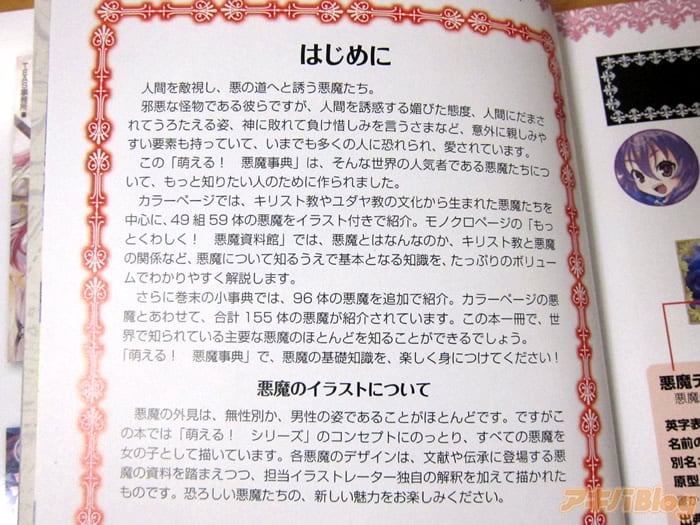 はじめに
人間を敵視し、悪の道へと誘う悪魔たち。
邪悪な怪物である彼らですが、人間を誘惑する媚びた態度、人間にだまさ
れてうろたえる姿、神に敗れて負け惜しみを言うさまなど、意外に親しみや
すい要素も持っていて、いまでも多くの人に恐れられ、愛されています。
この「萌える！ 悪魔事典」は、そんな世界の人気者である悪魔たちにつ
いて、もっと知りたい人のために作られました。
カラーページでは、キリスト教やユダヤ教の文化から生まれた悪魔たちを
中心に、49組59体の悪魔をイラスト付きで紹介。モノクロページの「もっ
とくわしく！ 悪魔資料館」では、悪魔とはなんなのか、キリスト教と悪魔
の関係など、悪魔について知るうえで基本となる知識を、たっぷりのボリュー
ムでわかりやすく解説します。
さらに巻末の小事典では、96体の悪魔を追加で紹介。カラーページの悪
魔とあわせて、合計155体の悪魔が紹介されています。この本一冊で、世
界で知られている主要な悪魔のほとんどを知ることができるでしょう。
「萌える！ 悪魔事典」で、悪魔の基礎知識を、楽しく身につけてください！
悪魔のイラストについて
悪魔の外見は、無性別か、男性の姿であることがほとんどです。ですがこ
の本では「萌える！ シリーズ」のコンセプトにのっとり、すべての悪魔を
女の子として描いています。各悪魔のデザインは、文献や伝承に登場する悪
魔の資料を踏まえつつ、担当イラストレーター独自の解釈を加えて描かれた
ものです。恐ろしい悪魔たちの、新しい魅力をお楽しみください。
TEAS事務所
悪魔デ
悪魔
英字表
名前の
別名：
原型
出典
アキバBlog